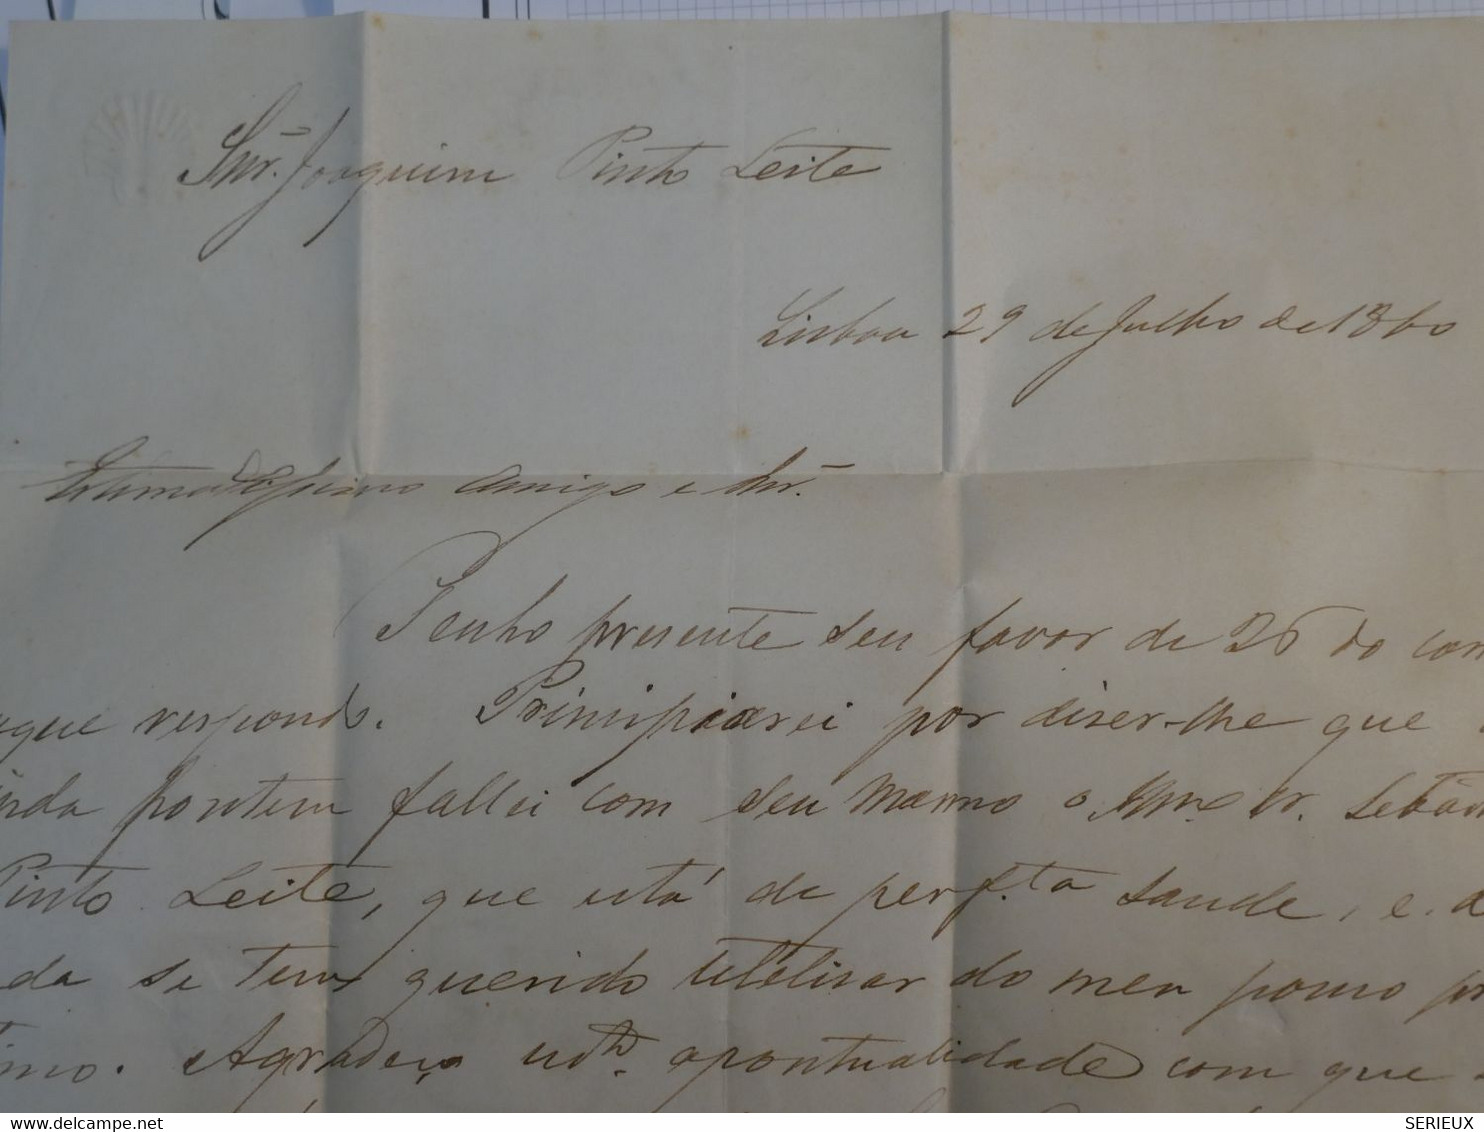 Snr. Joaquim Pinto Leite
Lisboa 29 de Julho de 1860
Amigo e Snr.
Tenho presente seu favor de 26 do corr
aque respondo. Principiarei por diser-lhe que
inda hontem fallei com seu Manno o Illmo Sr. Sebam
Pinto Leite, que está de perfta saude, e. d
da se tem querido utelisar do meu pouco pr
timo. Agradeço mto. apontualidade com que a
www.delcampe.net
SERIEUX